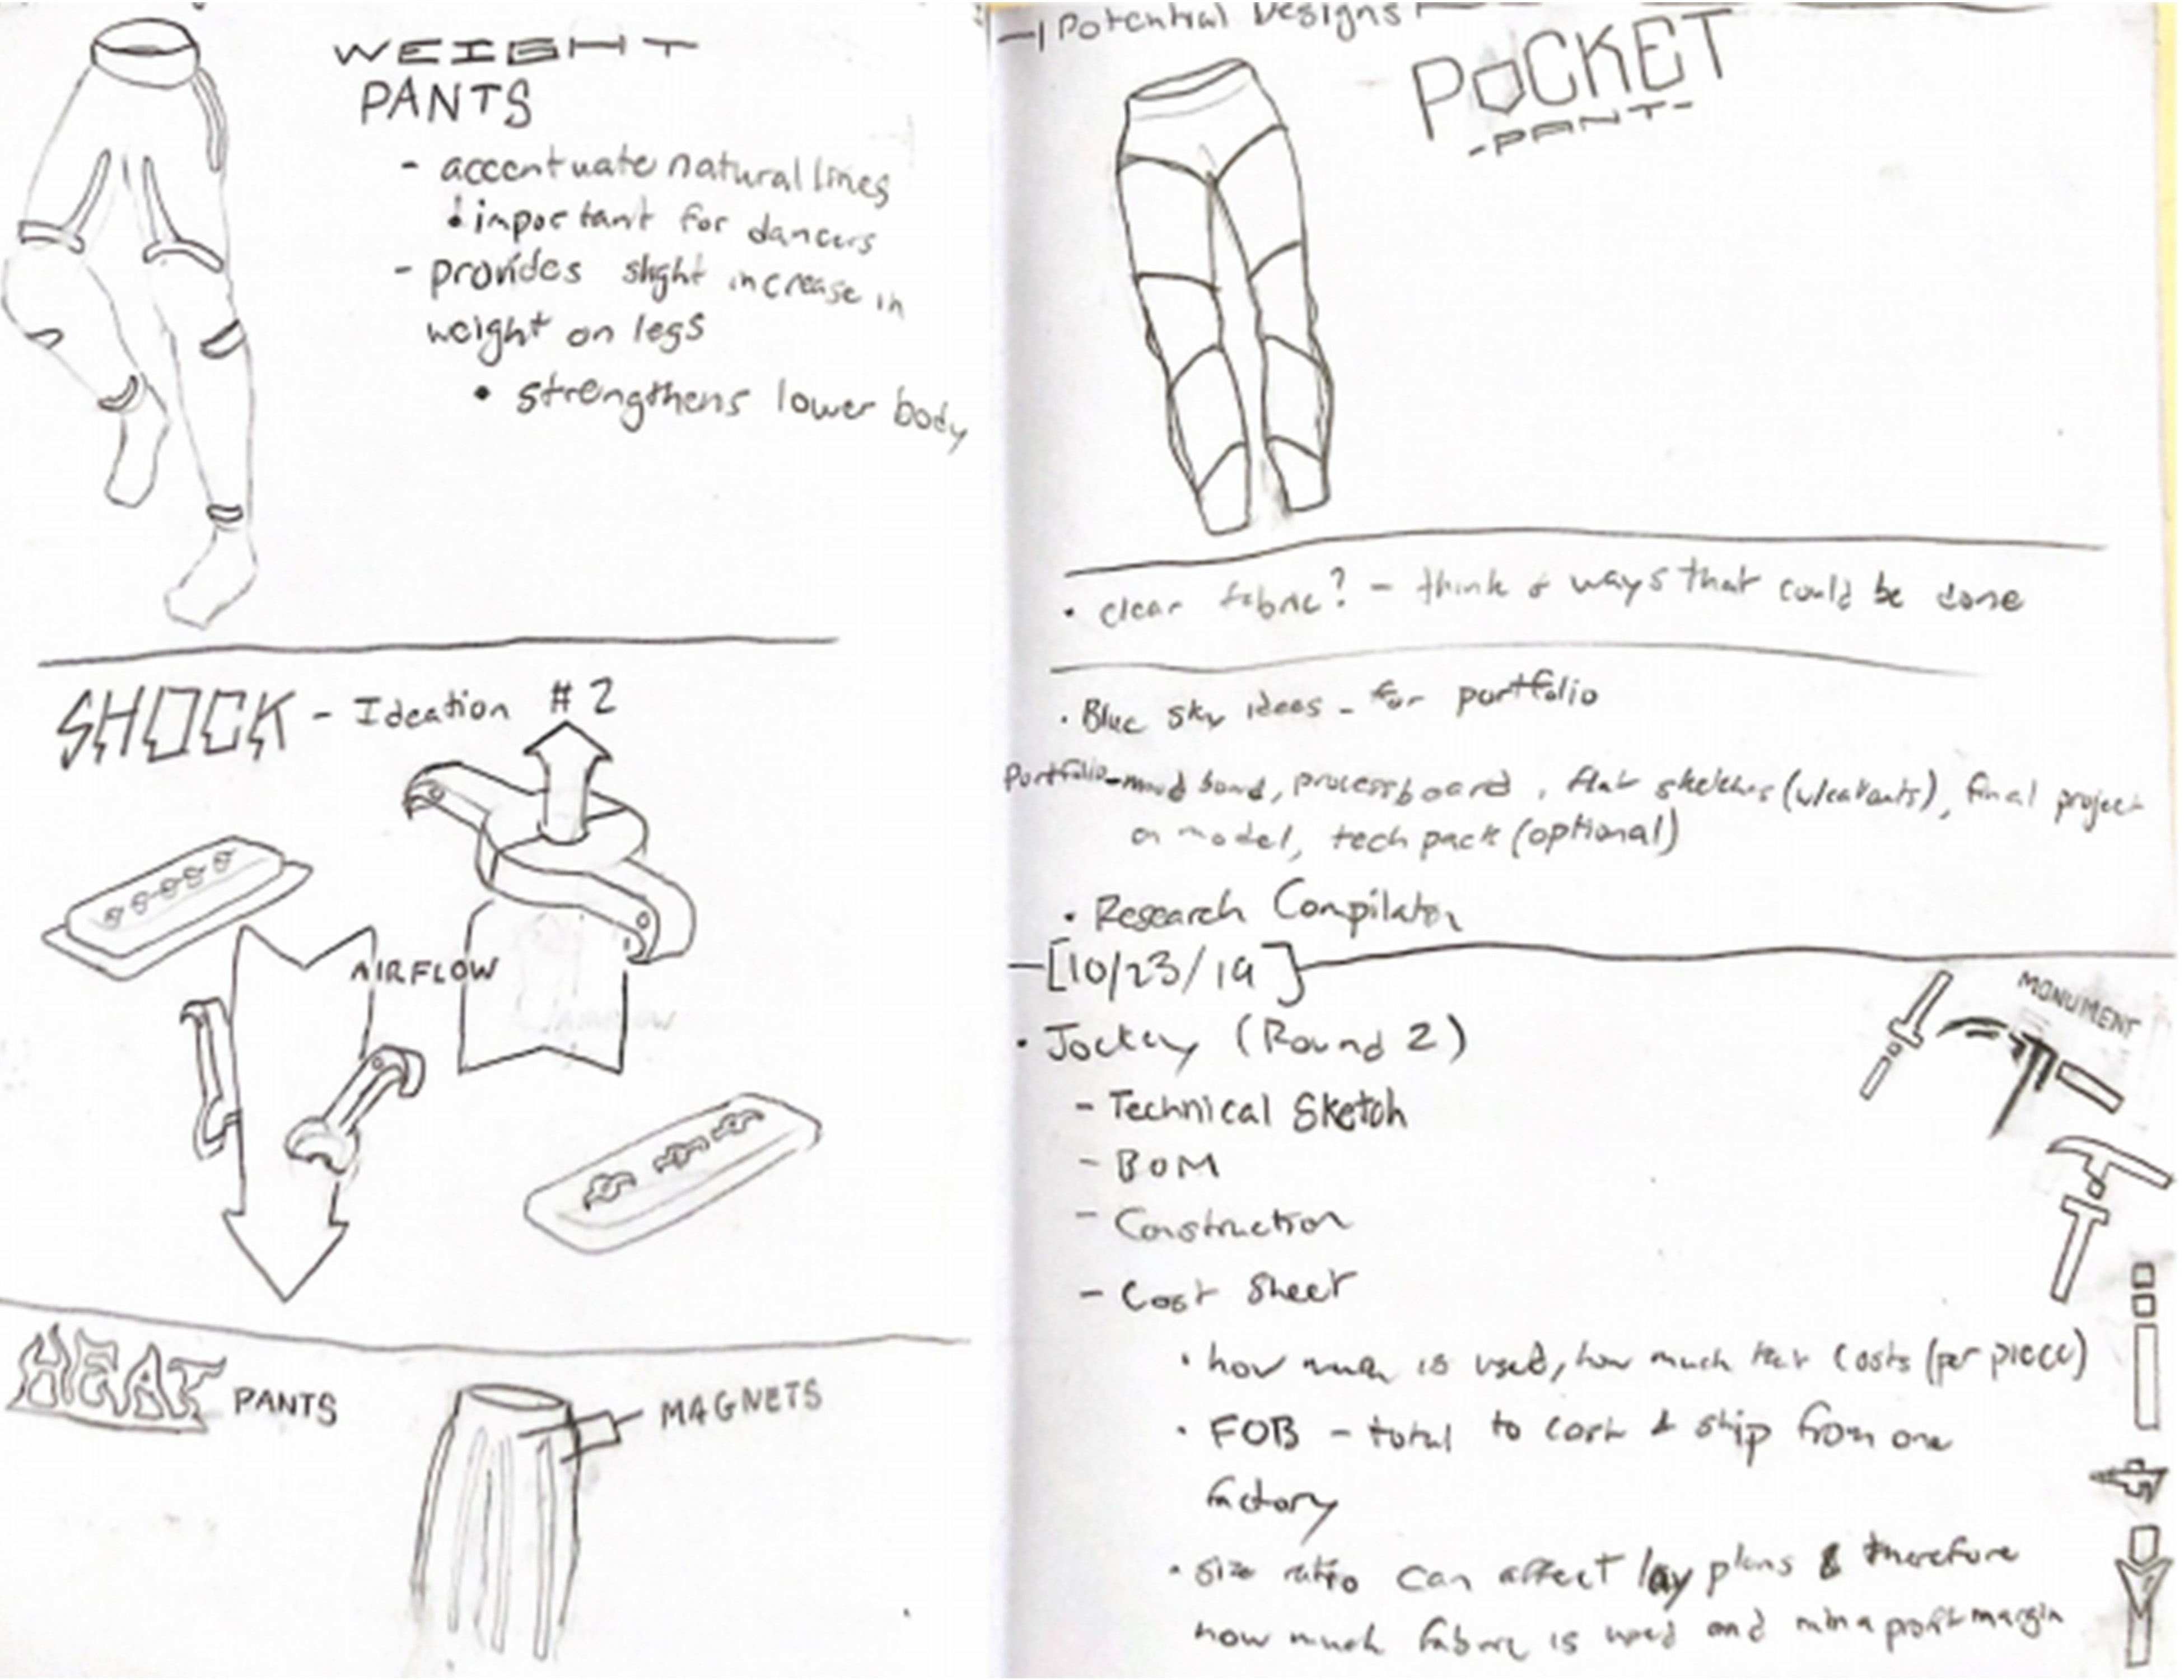 WEIGHT
PANTS
- accentuate natural lines
important for dancers
- provides slight increase in
weight on legs
• strengthens lower body
SHOCK - Ideation #2
AIRFLOW
AIRFLOW
HEAT PANTS
MAGNETS
Potential Designs
POCKET
-PANT-
• clear fabric? - think of ways that could be done
• Blue sky ideas - for portfolio
Portfolio - mood board, process board, flat sketches (w/callouts), final project
on model, tech pack (optional)
• Research Compilation
[10/23/19]
MONUMENT
• Jockey (Round 2)
- Technical Sketch
- BOM
- Construction
- Cost Sheet
• how much is used, how much that costs (per piece)
• FOB - total to cost & ship from one
factory
• size ratio can affect lay plans & therefore
how much fabric is used and profit margin